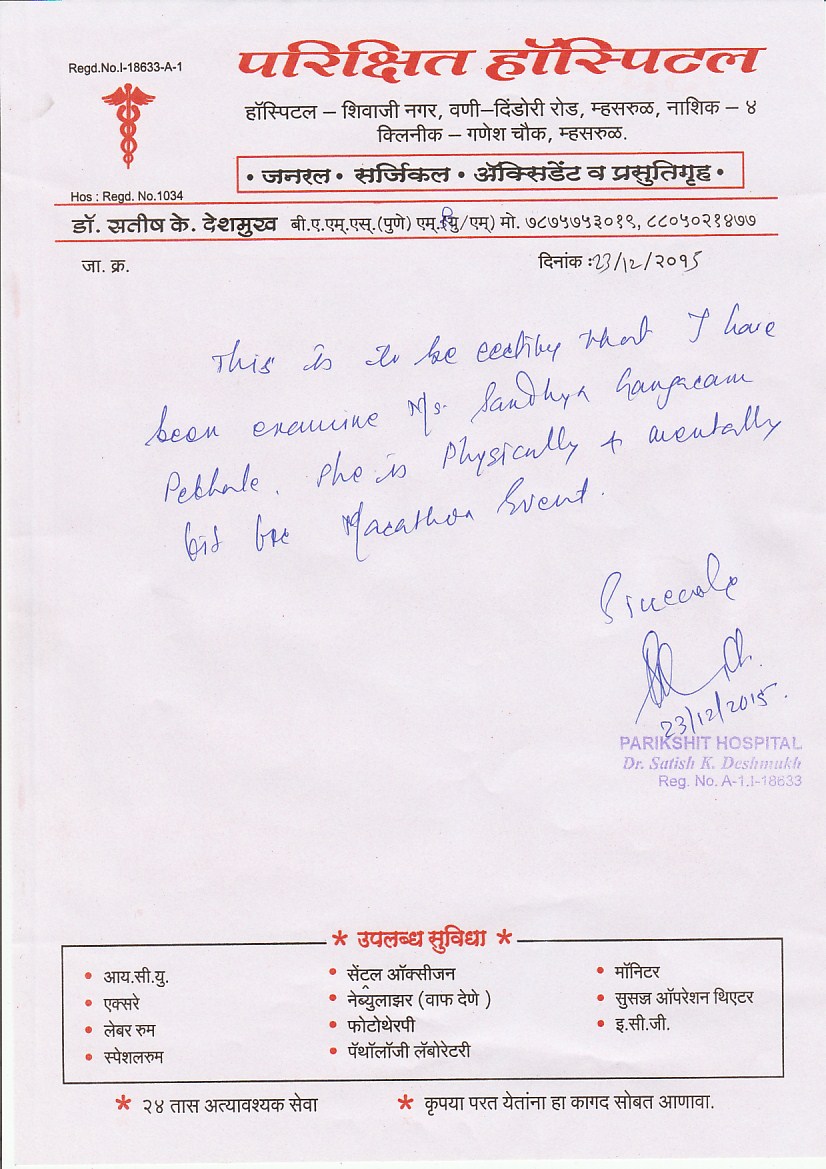 Regd.No.I-18633-A-1
परिक्षित हॉस्पिटल
हॉस्पिटल – शिवाजी नगर, वणी–दिंडोरी रोड, म्हसरुळ, नाशिक – ४
क्लिनीक – गणेश चौक, म्हसरुळ.
• जनरल • सर्जिकल • ॲक्सिडेंट व प्रसुतिगृह •
Hos : Regd. No.1034
डॉ. सतीष के. देशमुख बी.ए.एम्.एस्.(पुणे) मो. ७८७५७५३०१९, ८८०५०२१४७७
जा. क्र.
दिनांक :23/12/२०१5
This is to be certify that I have
been examine Ms. Sandhya Gangaram
Pekhale. She is Physically & mentally
fit for Marathon Event.
Sincerely
23/12/2015.
PARIKSHIT HOSPITAL
Dr. Satish K. Deshmukh
Reg. No. A-1.I-18633
* उपलब्ध सुविधा *
• आय.सी.यु.
• एक्सरे
• लेबर रुम
• स्पेशलरुम
• सेंट्रल ऑक्सीजन
• नेब्युलाझर (वाफ देणे )
• फोटोथेरपी
• पॅथॉलॉजी लॅबोरेटरी
• मॉनिटर
• सुसज्ज ऑपरेशन थिएटर
• इ.सी.जी.
* २४ तास अत्यावश्यक सेवा
* कृपया परत येतांना हा कागद सोबत आणावा.